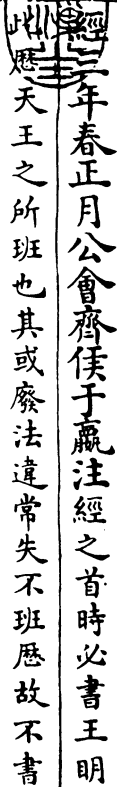 經三年春正月公會齊侯于嬴注經之首時必書王明
此厯天王之所班也其或廢法違常失不班厯故不書